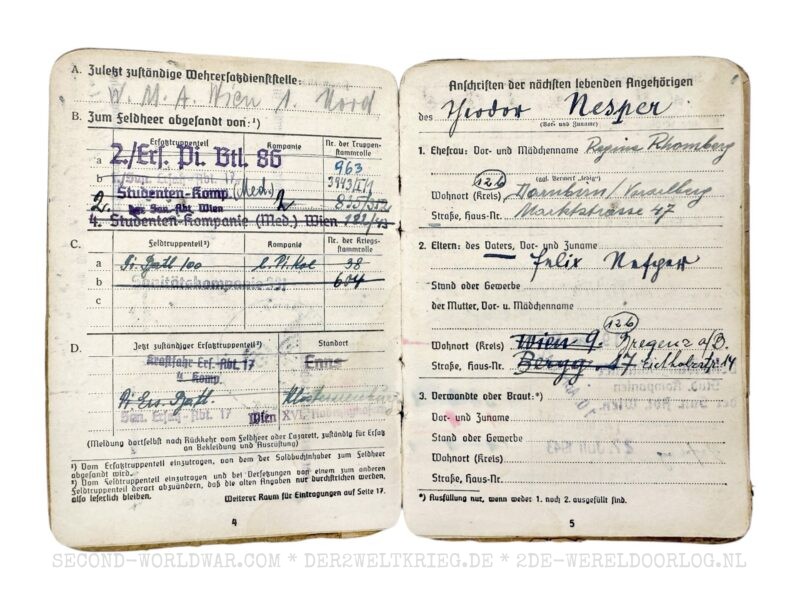 A. Zuletzt zuständige Wehrersatzdienststelle:
W. M. A. Wien 1. Nord
B. Zum Feldheer abgesandt von:¹)
Ersatztruppenteil Kompanie Nr. der Truppen-
stammrolle
a 2./Ers. Pi. Btl. 86 963
b
Studenten-Komp (Med.) 2
2. San. Abt. Wien
4. Studenten-Kompanie (Med.) Wien
C. Feldtruppenteil²) Kompanie Nr. der Kriegs-
stammrolle
a Pi. Batl 100 38
b Sanitätskompanie 604
c
D. Jetzt zuständiger Ersatztruppenteil²) Standort
Kraftfahr Ers. Abt. 17 Enns
4 Komp.
Pi Ers. Batl.
San. Ersatz-Abt. 17 Wien XVI.
(Meldung dortselbst nach Rückkehr vom Feldheer oder Lazarett, zuständig für Ersatz
an Bekleidung und Ausrüstung)
¹) Vom Ersatztruppenteil einzutragen, von dem der Soldbuchinhaber zum Feldheer
abgesandt wird.
²) Vom Feldtruppenteil einzutragen und bei Versetzungen von einem zum anderen
Feldtruppenteil derart abzuändern, daß die alten Angaben nur durchstrichen werden,
also leserlich bleiben.
Weiterer Raum für Eintragungen auf Seite 17.
4
Anschriften der nächsten lebenden Angehörigen
des Theodor Nesper
(Vor- und Zuname)
1. Ehefrau: Vor- und Mädchenname Regina Rhomberg
(ggf. Vermerk „ledig")
126
Wohnort (Kreis) Dornbirn / Vorarlberg
Straße, Haus-Nr. Marktstrasse 47
2. Eltern: des Vaters, Vor- und Zuname
Felix Nesper
Stand oder Gewerbe
der Mutter, Vor- u. Mädchenname
126
Wohnort (Kreis) Wien 9. Bregenz a/B.
Straße, Haus-Nr. Bergg. 17
3. Verwandte oder Braut:*)
Vor- und Zuname
Stand oder Gewerbe
Wohnort (Kreis)
Straße, Haus-Nr.
*) Ausfüllung nur, wenn weder 1. noch 2. ausgefüllt sind.
5
SECOND-WORLDWAR.COM * DER2WELTKRIEG.DE * 2DE-WERELDOORLOG.NL